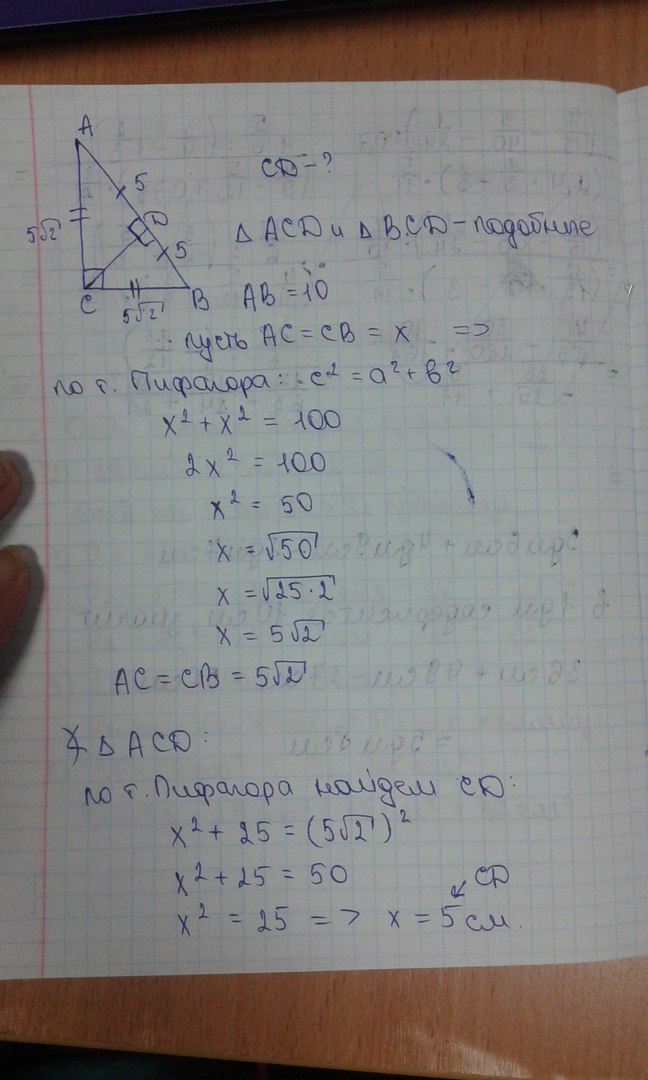 A
5
CD - ?
5√2
D
5
△ ACD и △ BCD - подобные
C
B
5√2
AB = 10
пусть AC = CB = x =>
по т. Пифагора: c² = a² + b²
x² + x² = 100
2x² = 100
x² = 50
x = √50
x = √25·2
x = 5√2
AC = CB = 5√2
△ ACD:
по т. Пифагора найдем CD:
x² + 25 = (5√2)²
x² + 25 = 50
CD
x² = 25 => x = 5 см.